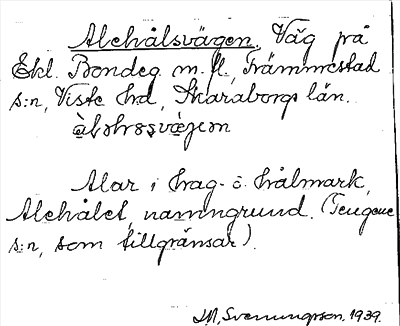 Alehålsvägen. Väg på
Ekl. Bondeg. m. fl., Främmestad
s:n, Viste hd, Skaraborgs län.
Alar i hag- o. hålmark,
Alehålet, namngrund. (Tengene
s:n, som tillgränsar).
J.M. Svenungsson. 1939.